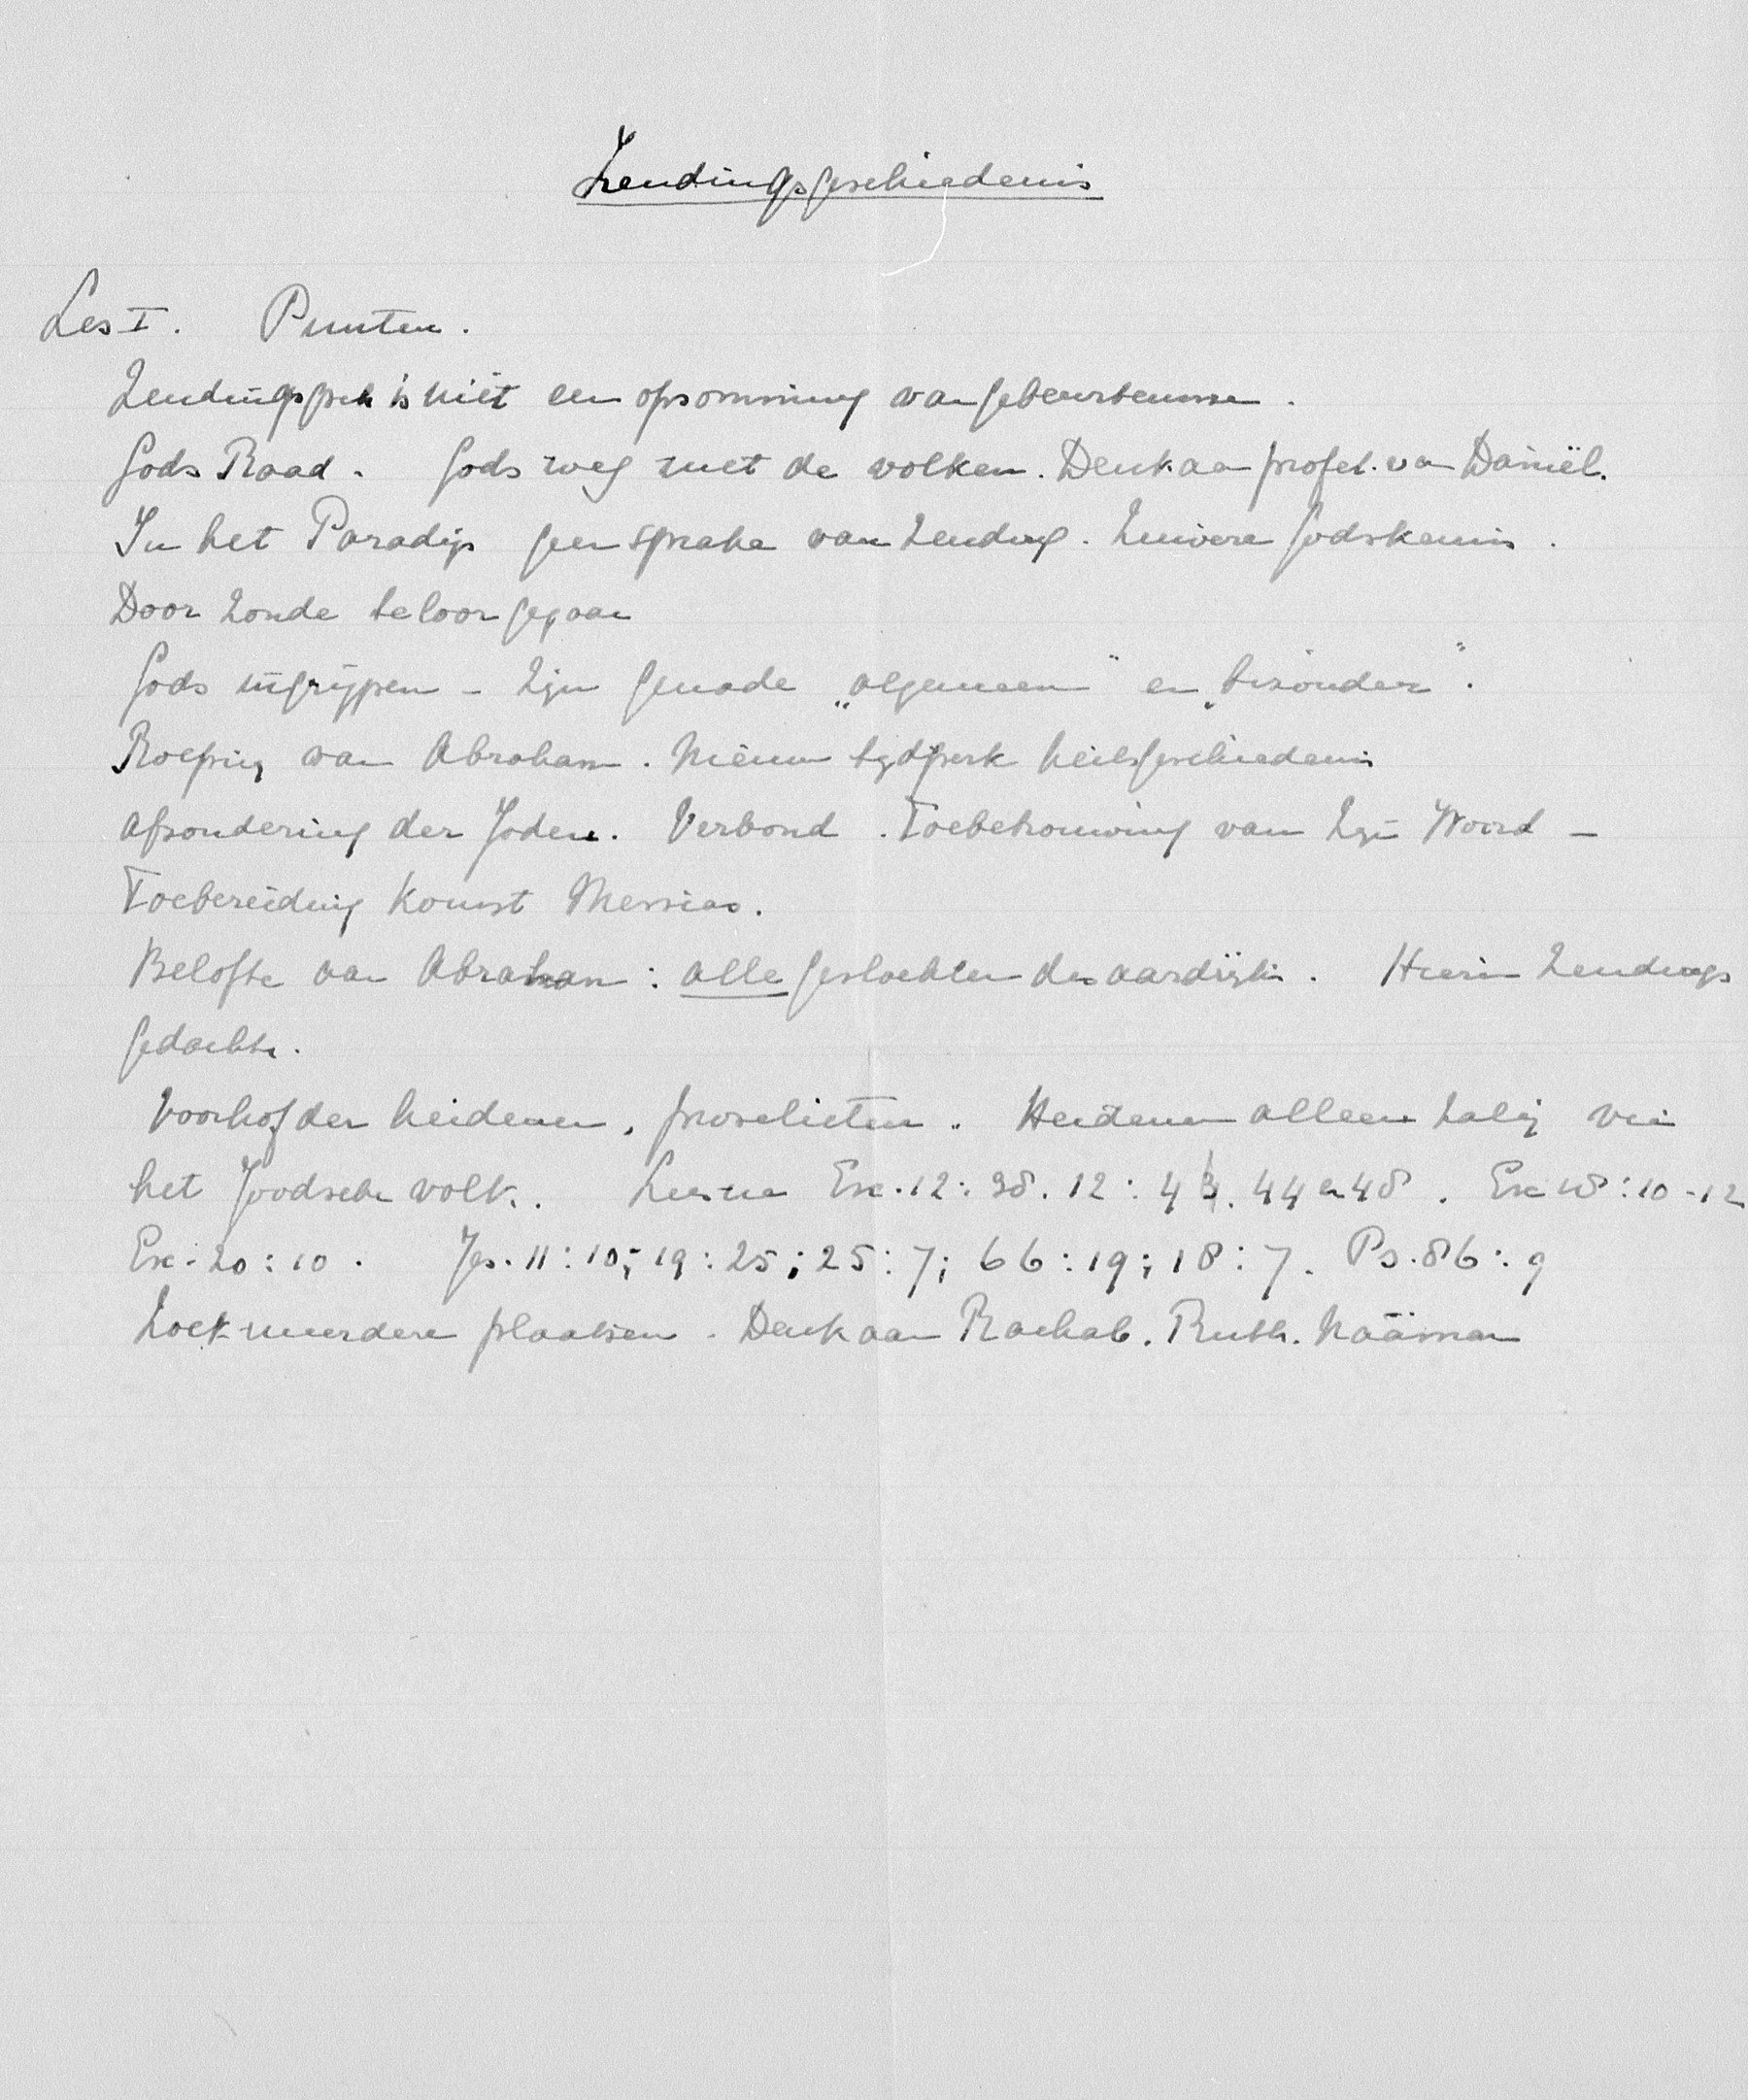 Zendingsgeschiedenis
Les I. Punten.
Zendingsgesch is niet een opsomming van gebeurtenissen.
Gods Raad. Gods weg met de volken. Denk aan profet. van Daniël.
In het Paradijs geen sprake van Zending. Zuivere Godskennis.
Door Zonde teloor gegaan
Gods ingrijpen - Zijn genade „algemeen" en „bizonder".
Roeping van Abraham. Nieuw tijdperk heilsgeschiedenis
Afzondering der Joden. Verbond. Toebetrouwing van Zijn Woord -
Toebereiding Komst Messias.
Belofte aan Abraham: alle geslachten des aardrijks. Hierin Zendings
gedachte.
Voorhof der heidenen, proselieten. Heidenen alleen zalig via
het Joodsche volk. Lees na Ex. 12:38. 12:43. 44 en 48. Ex 18:10-12
Ex. 20:10. Jes. 11:10; 19:25; 25:7; 66:19; 18:7. Ps. 86:9
Zoek meerdere plaatsen. Denk aan Rachab. Ruth. Naäman